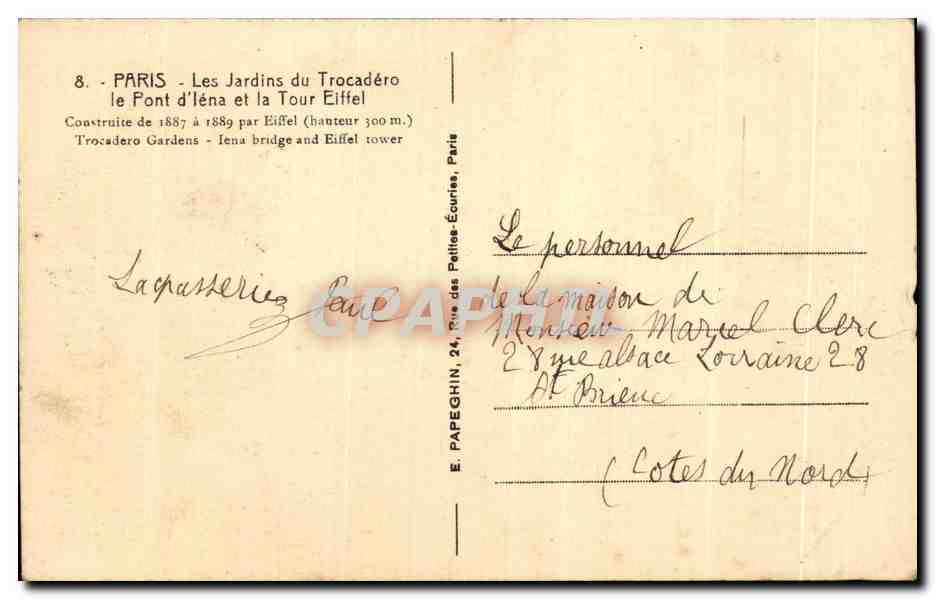 8. - PARIS - Les Jardins du Trocadéro
le Pont d'Iéna et la Tour Eiffel
Construite de 1887 à 1889 par Eiffel (hauteur 300 m.)
Trocadero Gardens - Iena bridge and Eiffel tower
Paul
E. PAPEGHIN, 24, Rue des Petites-Écuries, Paris
CPAPHIL
Le personnel
de la maison de
Monsieur Marcel Clerc
28 rue alsace Lorraine 28
St Brieuc
(Cotes du Nord)